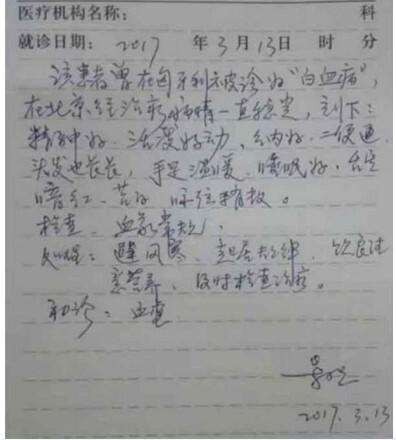 医疗机构名称: 科
就诊日期: 2017 年 3 月 13 日 时 分
该患者曾在匈牙利被诊为“白血病”,
在北京经治疗病情一直稳定, 刻下:
精神好、活泼好动、纳好、二便通
头发也长长, 手足温暖、睡眠好、舌
暗红、苔白、脉弦稍数。
检查: 血象常规
处理: 避风寒、起居规律、饮食注
意营养、及时检查治疗。
初诊: 血虚
2017.3.13